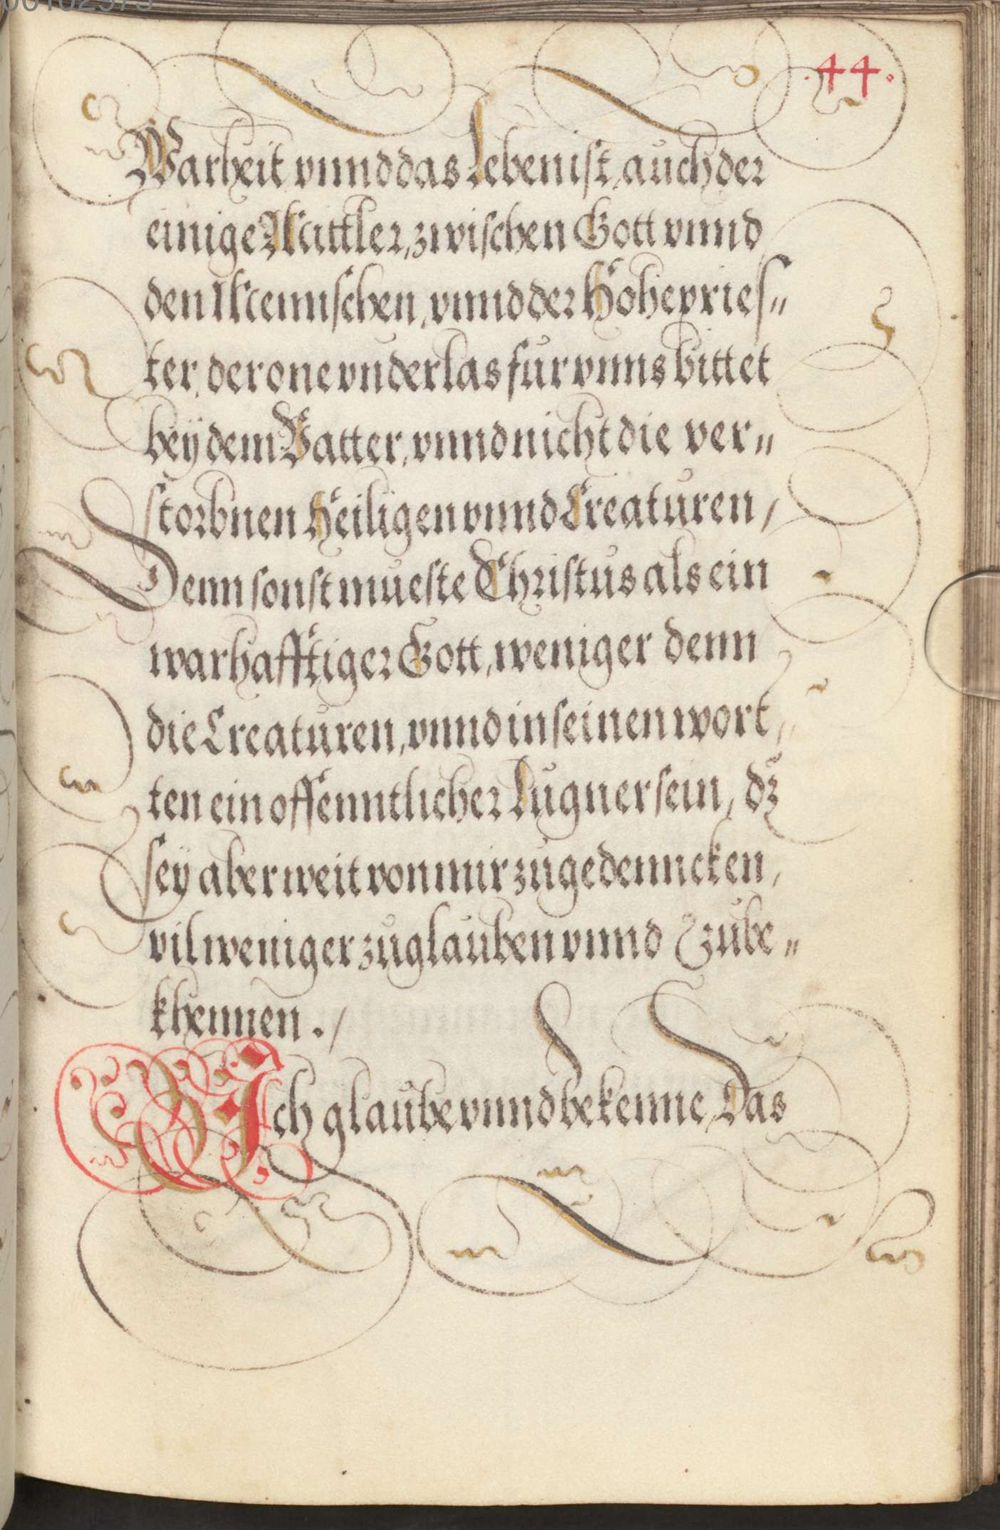 .44.
Warheit vnnd das Leben ist, auch der
einige Mittler, zwischen Gott vnnd
den Mennschen, vnnd der Hohepries„
ter, der one vnderlas für vnns bittet
bey dem Vatter, vnnd nicht die ver„
storbnen Heiligen vnnd Creaturen /
Denn sonst mueste Christus als ein
warhafftiger Gott, weniger denn
die Creaturen, vnnd in seinen wort„
ten ein offenntlicher Lugner sein, dz
sey aber weit von mir zugedenncken,
vil weniger zuglauben vnnd Zube„
khennen ./
Ich glaube vnnd bekenne, Das